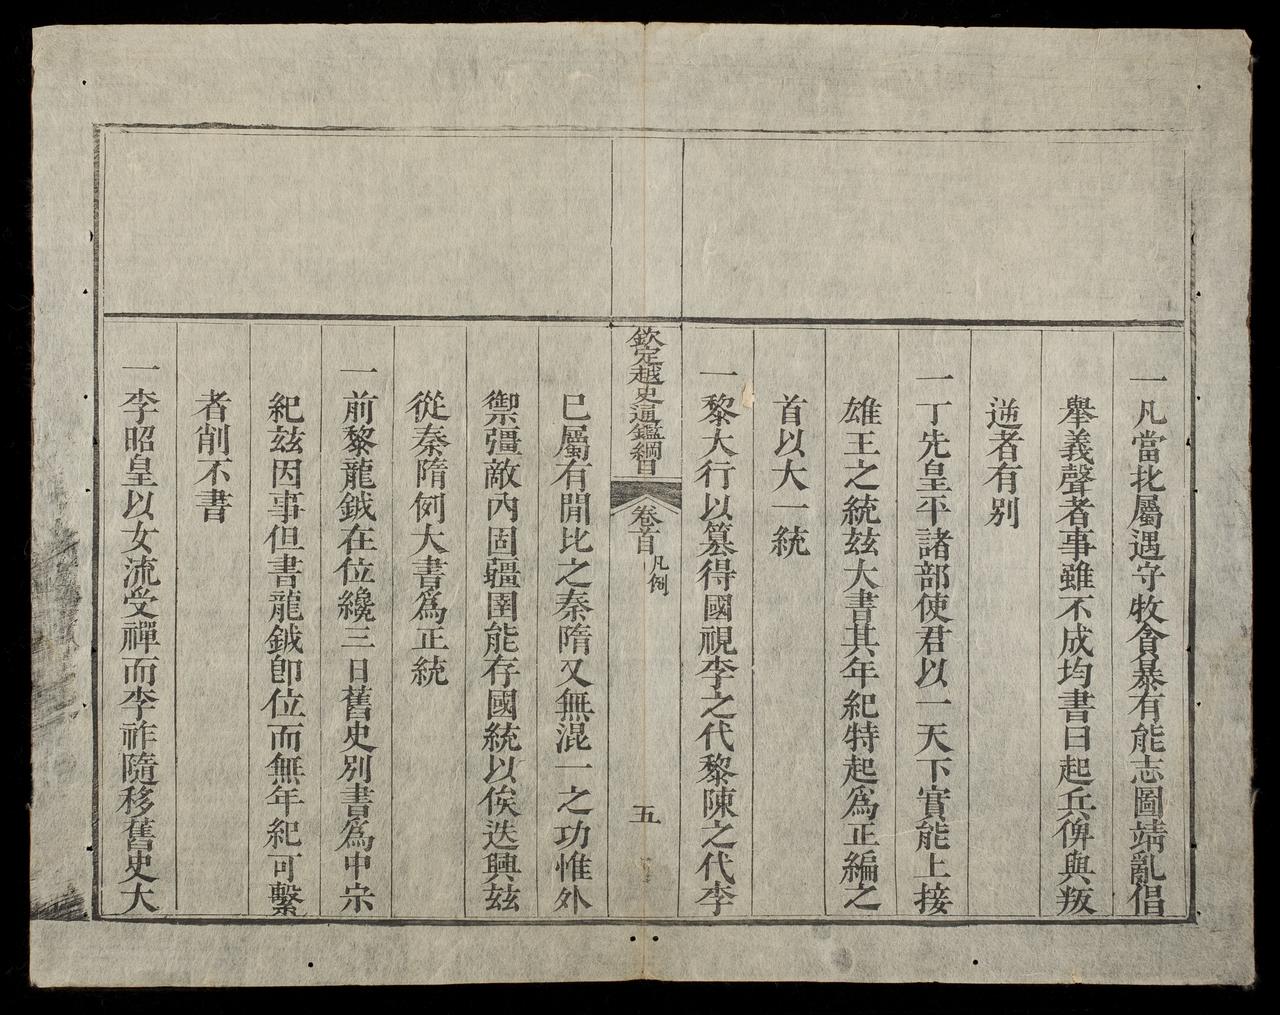 一凡當北屬遇守牧貪暴有能志圖靖亂倡
舉義聲者事雖不成均書曰起兵俾與叛
逆者有别
一丁先皇平諸部使君以一天下實能上接
雄王之統玆大書其年紀特起爲正編之
首以大一統
一黎大行以簒得國視李之代黎陳之代李
欽定越史通鑑綱目
卷首
凡例
五
已屬有間比之秦隋又無混一之功惟外
禦彊敵內固疆圉能存國統以俟迭興玆
從秦隋例大書爲正統
一前黎龍鉞在位纔三日舊史別書爲中宗
紀玆因事但書龍鉞卽位而無年紀可繫
者削不書
一李昭皇以女流受禪而李祚隨移舊史大